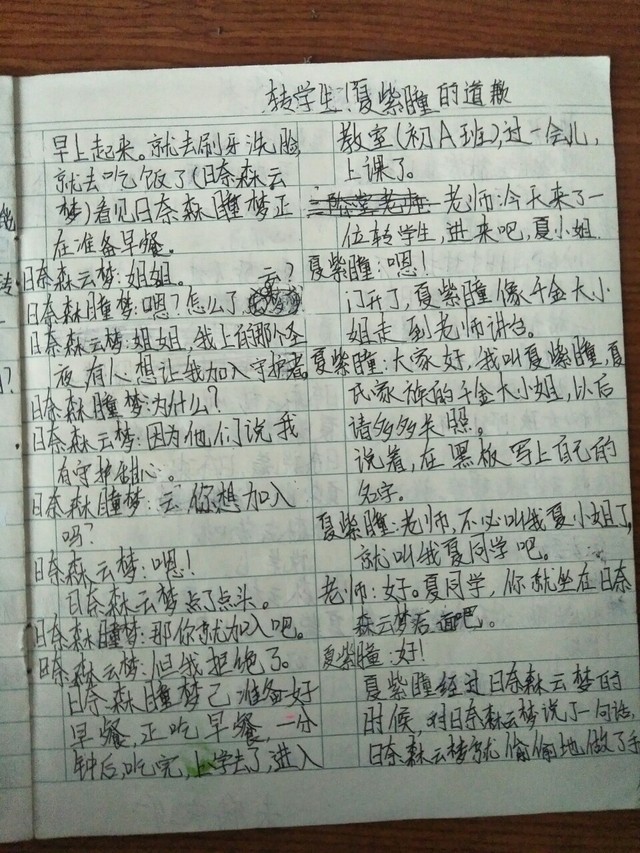 转学生!夏紫瞳的道歉
早上起来。就去刷牙洗脸,
就去吃饭了(日奈森云
梦)看见日奈森瞳梦正
在准备早餐。
日奈森云梦:姐姐。
日奈森瞳梦:嗯?怎么了云?
日奈森云梦:姐姐,我上的那个圣
夜有人想让我加入守护者。
日奈森瞳梦:为什么?
日奈森云梦:因为他们说我
有守护甜心。
日奈森瞳梦:云你想加入
吗?
日奈森云梦:嗯!
日奈森云梦点了点头。
日奈森瞳梦:那你就加入吧。
日奈森云梦:但我拒绝了。
日奈森瞳梦已准备好
早餐,正吃早餐,一分
钟后,吃完,上学去了,进入
教室(初A班),过一会儿,
上课了。
老师:今天来了一
位转学生,进来吧,夏小姐.
夏紫瞳:嗯!
门开了,夏紫瞳像千金大小
姐走到老师讲台。
夏紫瞳:大家好,我叫夏紫瞳,夏
氏家族的千金大小姐,以后
请多多关照。
说着,在黑板写上自己的
名字。
夏紫瞳:老师,不必叫我夏小姐了,
就叫我夏同学吧。
老师:好。夏同学,你就坐在日奈
森云梦后面吧。
夏紫瞳:好!
夏紫瞳经过日奈森云梦的
时候,对日奈森云梦说了一句话,
日奈森云梦就偷偷地做了手